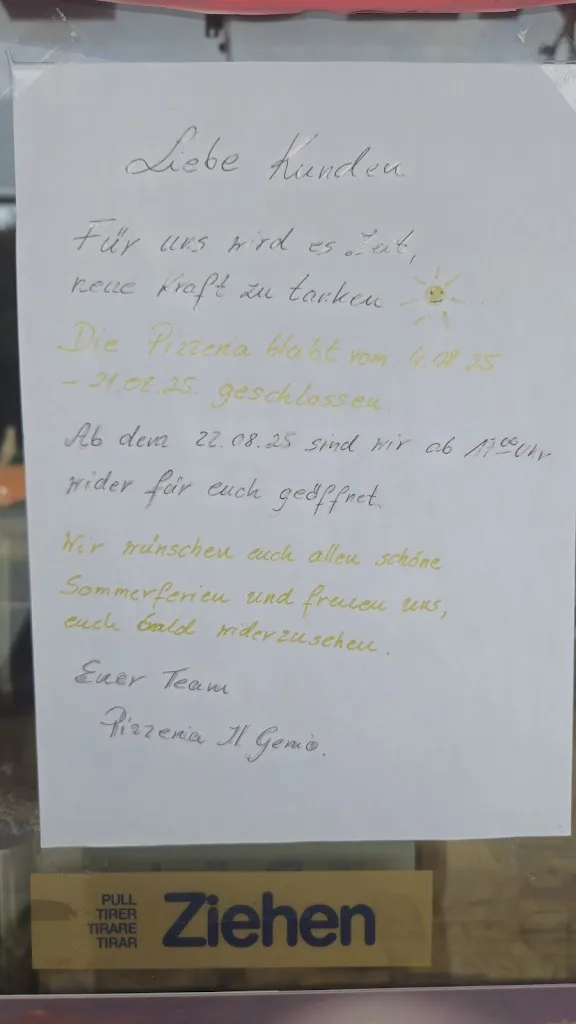 Liebe Kunden
Für uns wird es Zeit,
neue Kraft zu tanken
Die Pizzeria bleibt vom 4.08.25
- 21.08.25. geschlossen
Ab dem 22.08.25 sind wir ab 17°° Uhr
wider für euch geöffnet.
Wir wünschen euch allen schöne
Sommerferien und freuen uns,
euch bald widerzusehen.
Euer Team
Pizzeria Il Genio.
PULL
TIRER
TIRARE
TIRAR
Ziehen